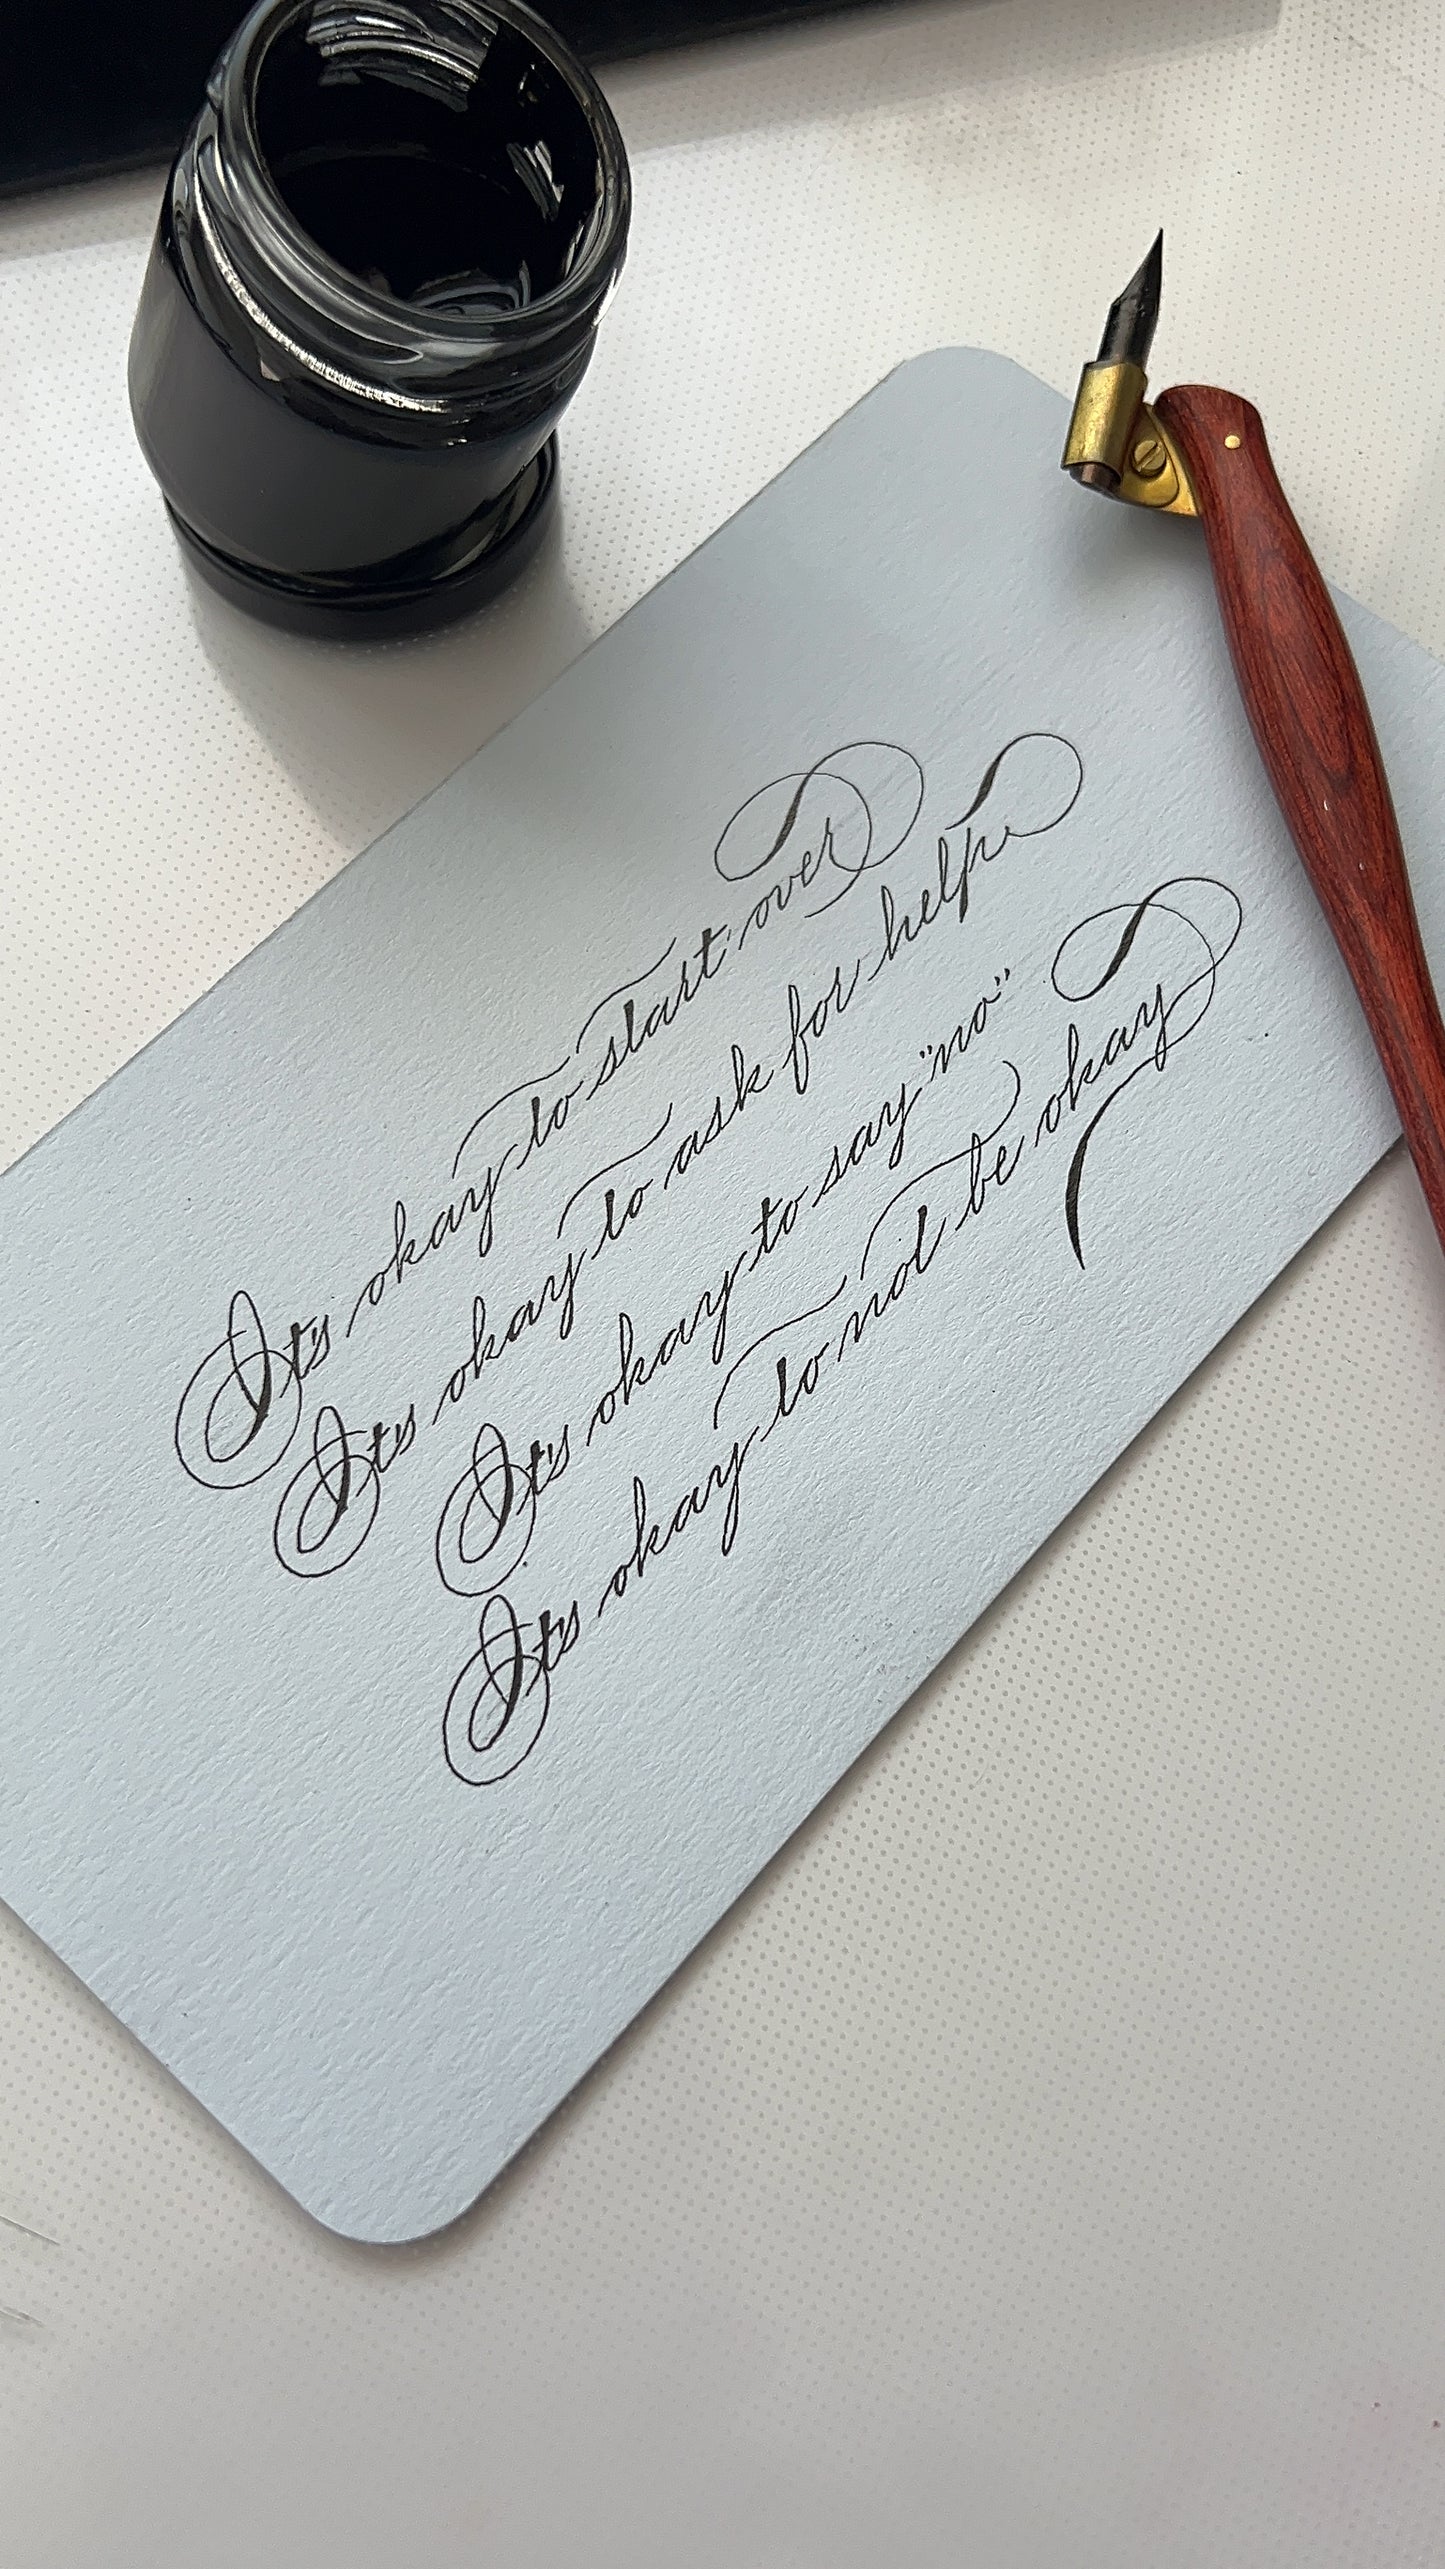 It's okay to start over
It's okay to ask for help
It's okay to say "no"
It's okay to not be okay